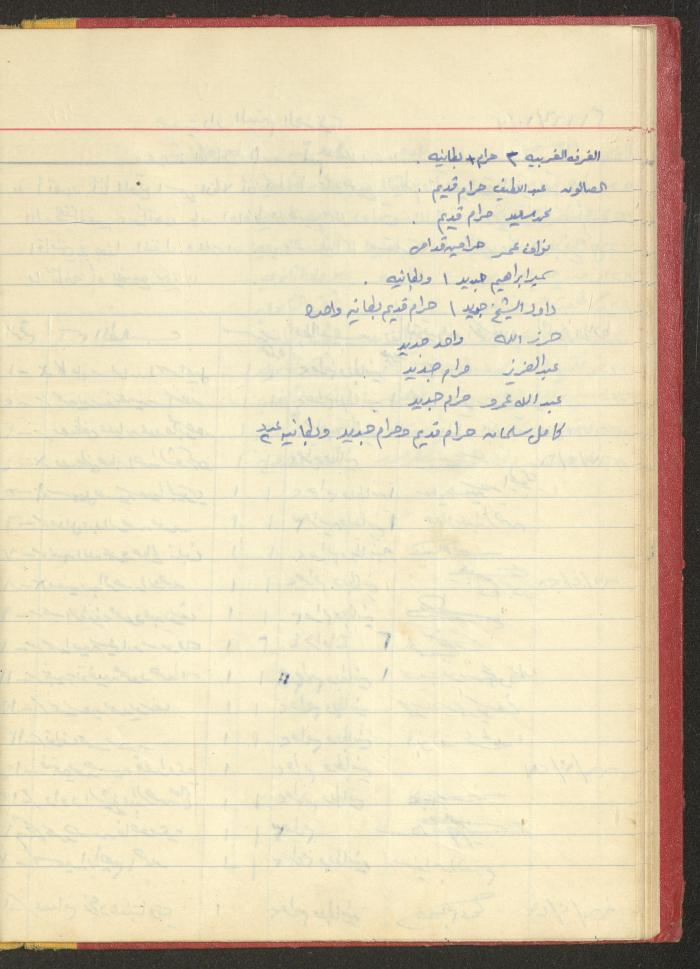 الغرفه الغربيه ٣ حرام + بطانيه .
الصالون عبد اللطيف حرام قديم .
محمد سعيد حرام قديم .
نواف عمر حرامين قدام
سمير ابراهيم جديد ١ وبطانيه .
داود الشيخ جديد ١ حرام قديم بطانيه واحده
حرز الله واحد جديد
عبد العزيز حرام جديد
عبد الله عمرو حرام جديد
كامل سلمان حرام قديم وحرام جديد وبطانيه عدد